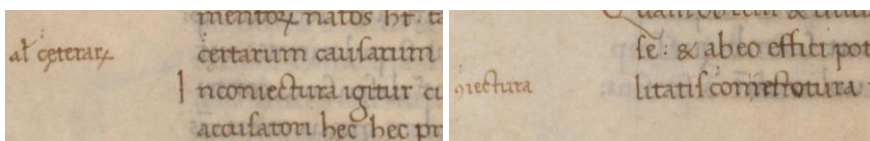 mentoꝝ natos hr̄. ta
al̄ cęterarꝝ
cęrtarum causarum
Inconiectura igitur cu
accusatori hec hec pr
se: & ab eo effici pot
ꝯiectura
litatis comectotura